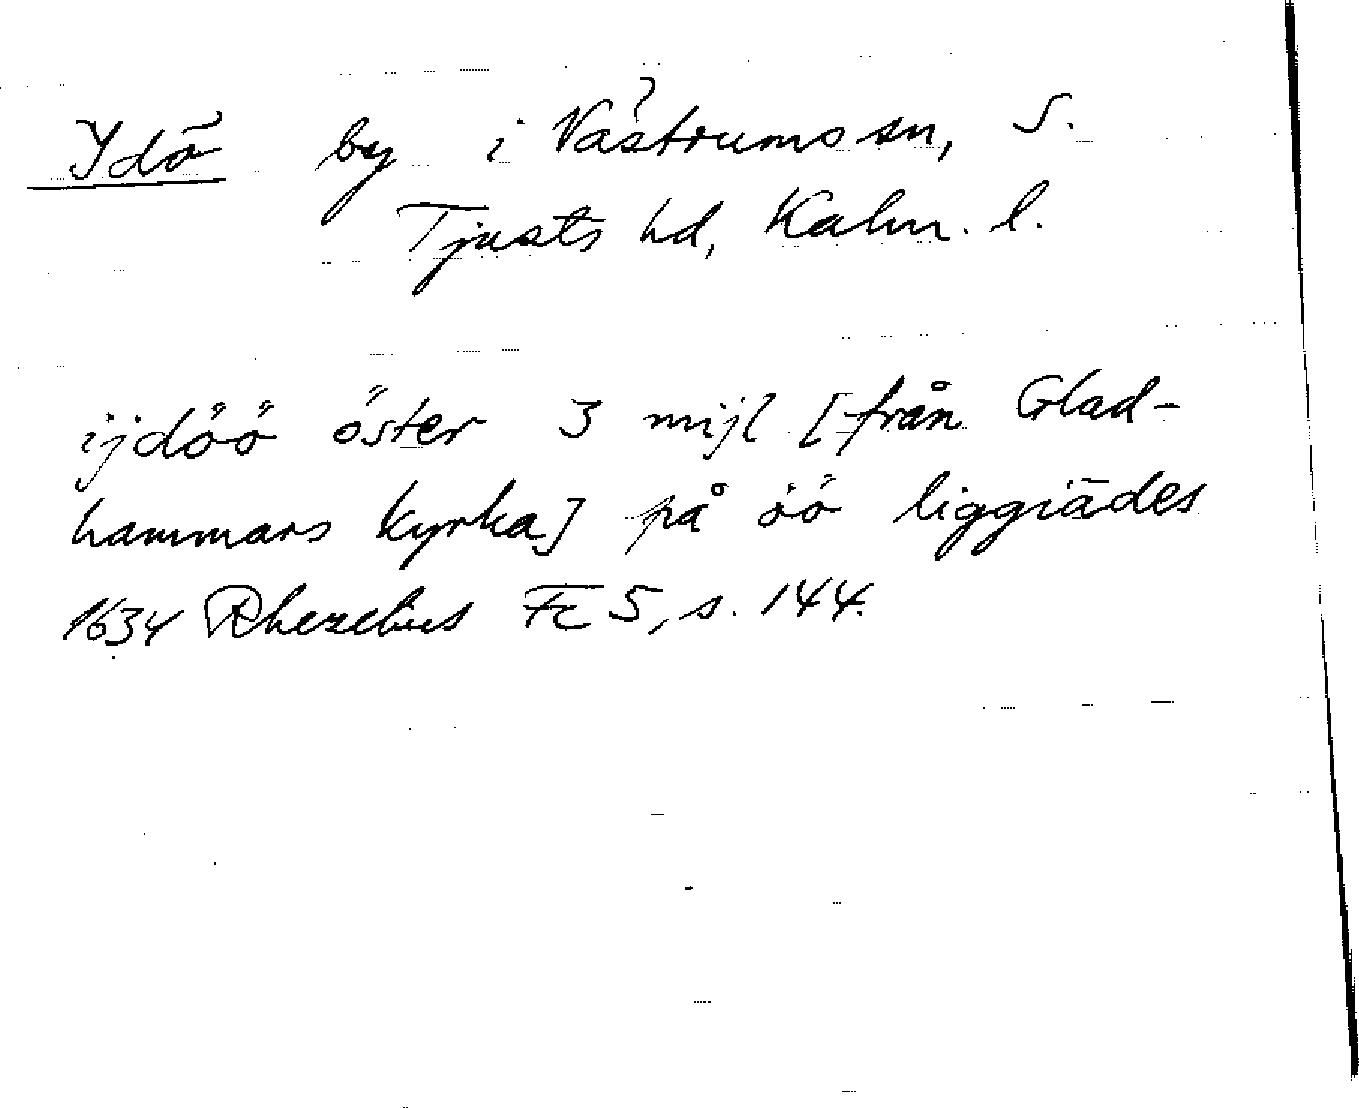 Ydö by i Västrums sn, S.
Tjusts hd, Kalm. l.
ijdöö öster 3 mijl [från Glad-
hammars kyrka] på öö liggiädes
1634 Rhezelius Fc 5, s. 144.